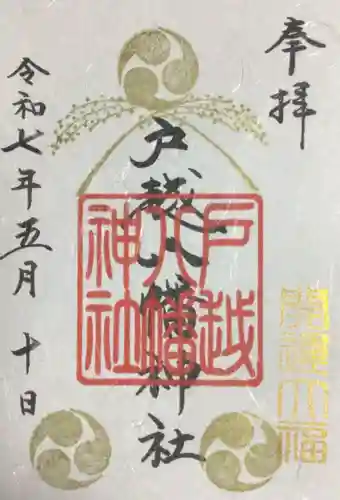 奉拝
戸越八幡神社
戸越
八幡
神社
開運大福
令和七年五月十日